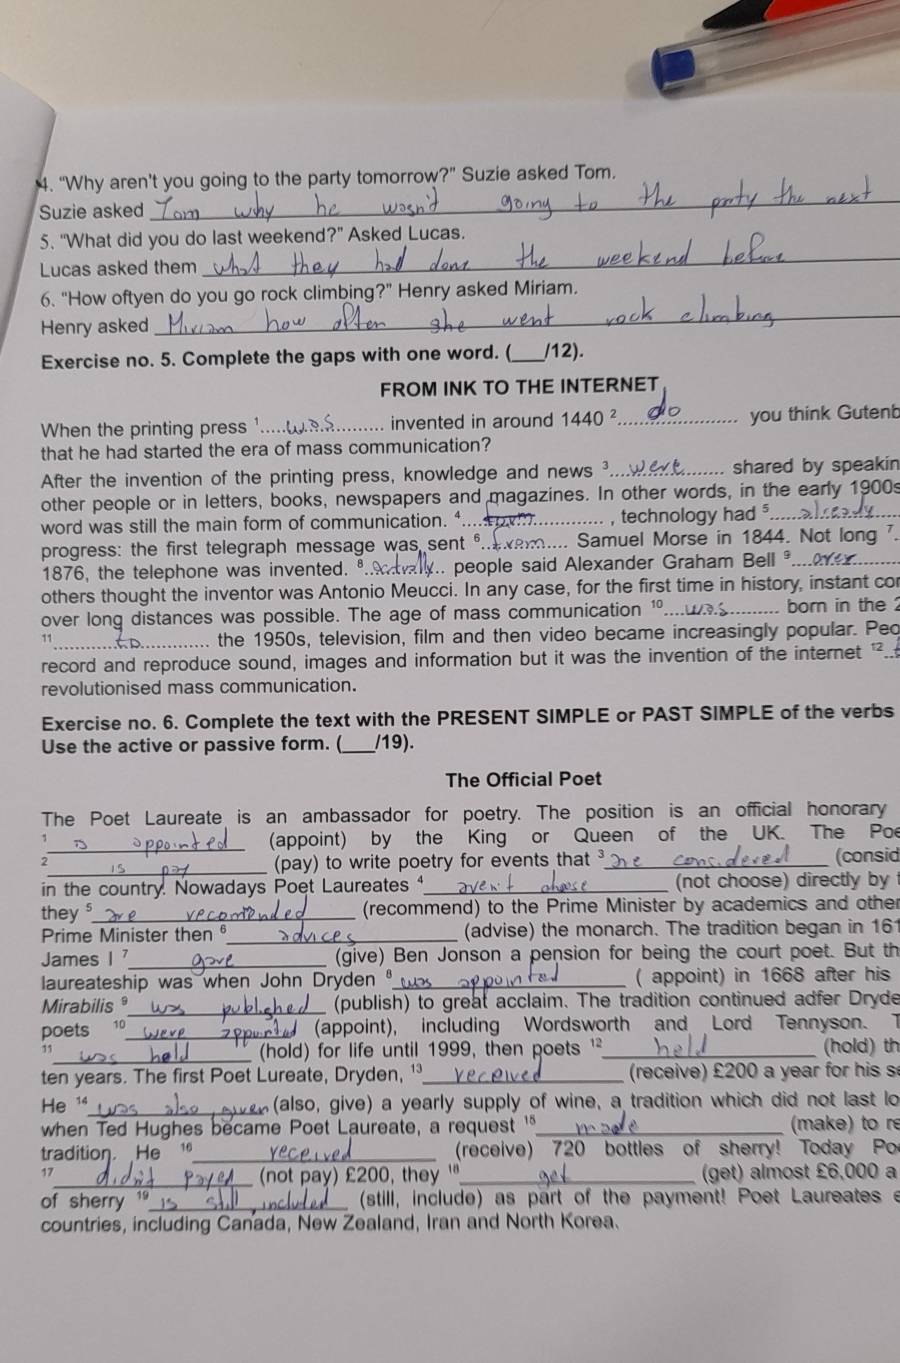 4. "Why aren't you going to the party tomorrow?" Suzie asked Tom.
Suzie asked Tom why he wasn't going to the party the next
5. "What did you do last weekend?" Asked Lucas.
Lucas asked them what they had done the weekend before
6. "How oftyen do you go rock climbing?" Henry asked Miriam.
Henry asked Miriam how often she went rock climbing
Exercise no. 5. Complete the gaps with one word. (___/12).
FROM INK TO THE INTERNET
When the printing press ¹.....was.......... invented in around 1440 ²......do.............. you think Gutenb
that he had started the era of mass communication?
After the invention of the printing press, knowledge and news ³....were....... shared by speakin
other people or in letters, books, newspapers and magazines. In other words, in the early 1900s
word was still the main form of communication. ⁴.................... , technology had ⁵......already.....
progress: the first telegraph message was sent ⁶...from.... Samuel Morse in 1844. Not long ⁷.
1876, the telephone was invented. ⁸..actually.. people said Alexander Graham Bell ⁹....over........
others thought the inventor was Antonio Meucci. In any case, for the first time in history, instant cor
over long distances was possible. The age of mass communication ¹⁰....was......... born in the 2
¹¹...........to.............. the 1950s, television, film and then video became increasingly popular. Peo
record and reproduce sound, images and information but it was the invention of the internet ¹²..t
revolutionised mass communication.
Exercise no. 6. Complete the text with the PRESENT SIMPLE or PAST SIMPLE of the verbs
Use the active or passive form. (___/19).
The Official Poet
The Poet Laureate is an ambassador for poetry. The position is an official honorary
¹ is appointed (appoint) by the King or Queen of the UK. The Poe
² is pay (pay) to write poetry for events that ³ are considered (consid
in the country. Nowadays Poet Laureates ⁴ aren't choose (not choose) directly by t
they ⁵ are recomended (recommend) to the Prime Minister by academics and other
Prime Minister then ⁶ advices (advise) the monarch. The tradition began in 161
James I ⁷ gave (give) Ben Jonson a pension for being the court poet. But th
laureateship was when John Dryden ⁸ was appointed ( appoint) in 1668 after his
Mirabilis ⁹ was published (publish) to great acclaim. The tradition continued adfer Dryde
poets ¹⁰ were appointed (appoint), including Wordsworth and Lord Tennyson. T
¹¹ was held (hold) for life until 1999, then poets ¹² held (hold) th
ten years. The first Poet Lureate, Dryden, ¹³ received (receive) £200 a year for his sa
He ¹⁴ was also given (also, give) a yearly supply of wine, a tradition which did not last lo
when Ted Hughes became Poet Laureate, a request ¹⁵ made (make) to re
tradition. He ¹⁶ received (receive) 720 bottles of sherry! Today Po
¹⁷ didn't payed (not pay) £200, they ¹⁸ get (get) almost £6,000 a
of sherry ¹⁹ is still included (still, include) as part of the payment! Poet Laureates e
countries, including Canada, New Zealand, Iran and North Korea.